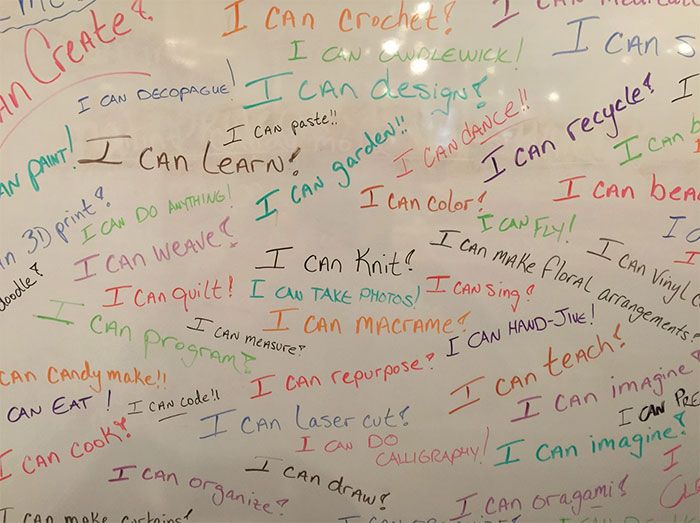 I CAN CROCHET!
I CAN
AN CREATE!
I CAN CANDLEWICK!
I CAN S
I CAN DECOPAGUE!
I CAN design!
I CAN paste!!
I CAN DANCE!!
I CAN recycle!
I
AN PAINT!
I CAN LEARN!
I CAN garden!!
I CAN b
I CAN DO ANYTHING!
I CAN color!
I CAN bea
n 3D print!
I CAN FLY!
I CAN WEAVE!
I CAN Knit!
I CAN MAKE floral arrangements!
I CAN Vinyl
doodle!
I CAN quilt!
I CAN TAKE PHOTOS!
I CAN sing!
I CAN program!
I CAN measure!
I CAN MACRAME!
I CAN HAND-JIVE!
CAN CANDY make!!
I CAN repurpose!
I CAN teach!
CAN EAT!
I CAN code!!
I CAN LASER CUT!
I CAN imagine!
I CAN PRE
I CAN COOK!
I CAN DO
CALLIGRAPHY!
I CAN imagine!
I
I CAN organize!
I CAN draw!
I CAN oragami!
I CAN make curtains!